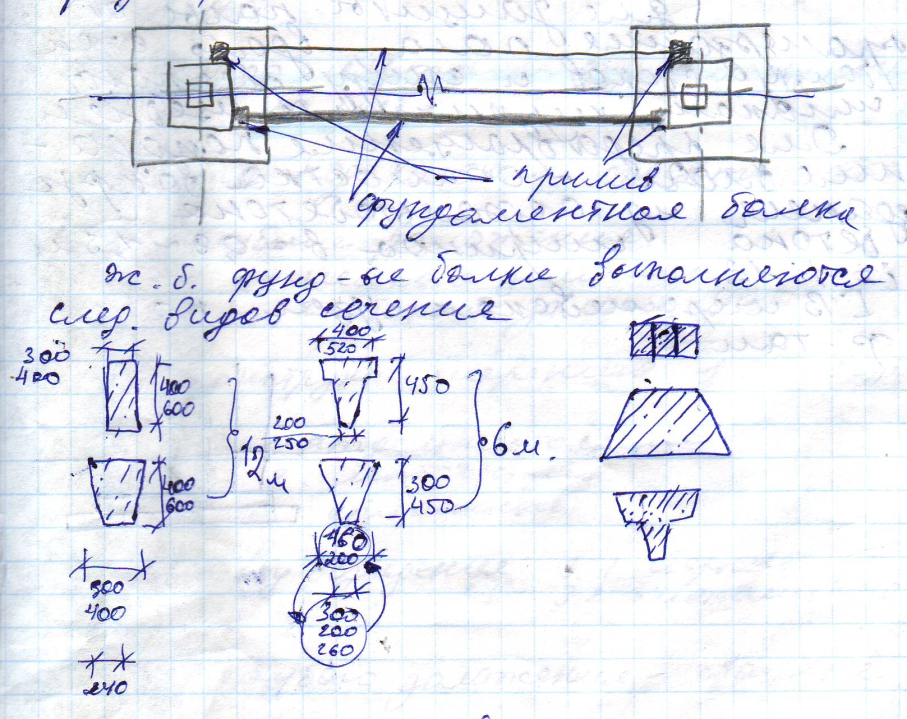 прилив
фундаментная балка
ж. б. фунд-ые балки выполняются
след. видов сечения
300
400
400
600
12 м
400
600
300
400
240
400
520
450
200
250
6 м.
300
450
160
200
300
200
260